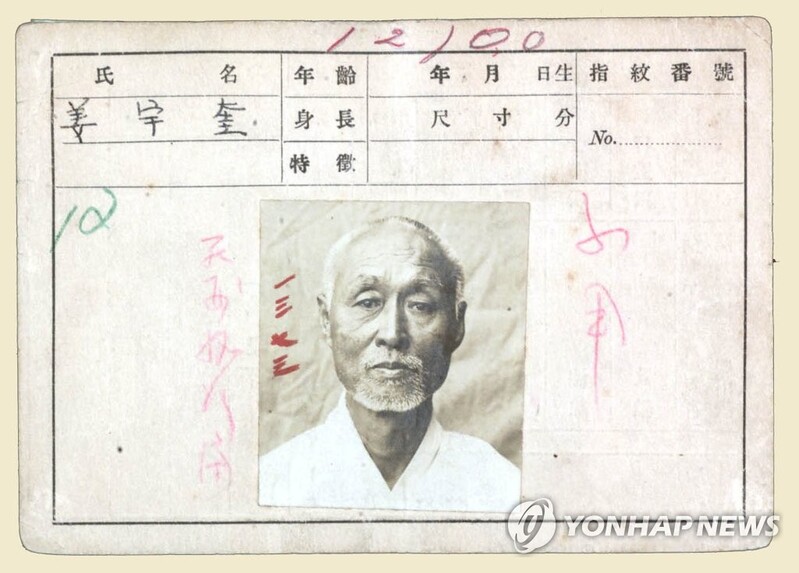 12100
氏 名 年 齡 年 月 日生 指紋番號
姜宇奎 身 長 尺 寸 分 No.
特 徵
12
不用
一三七三
YONHAP NEWS